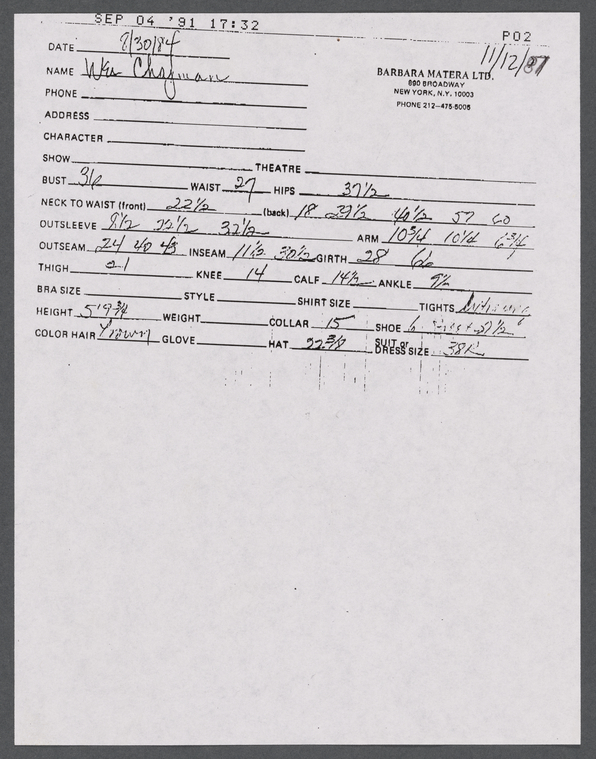 SEP 04 '91 17:32 P02
11/12/87
DATE 8/30/84
NAME Wes Chapman
BARBARA MATERA LTD.
890 BROADWAY
NEW YORK, N.Y. 10003
PHONE 212-475-5006
PHONE
ADDRESS
CHARACTER
SHOW THEATRE
BUST 36 WAIST 27 HIPS 37 1/2
NECK TO WAIST (front) 22 1/2 (back) 18 29 1/2 40 1/2 57 60
OUTSLEEVE 8 1/2 22 1/2 32 1/2 ARM 10 3/4 10 1/4 6 3/4
OUTSEAM 24 40 43 INSEAM 11 1/2 30 1/2 GIRTH 28 66
THIGH 21 KNEE 14 CALF 14 1/2 ANKLE 9 1/2
BRA SIZE STYLE SHIRT SIZE TIGHTS
HEIGHT 5'9 3/4 WEIGHT COLLAR 15 SHOE 6
COLOR HAIR Brown GLOVE HAT 22 3/8 SUIT or DRESS SIZE 38R